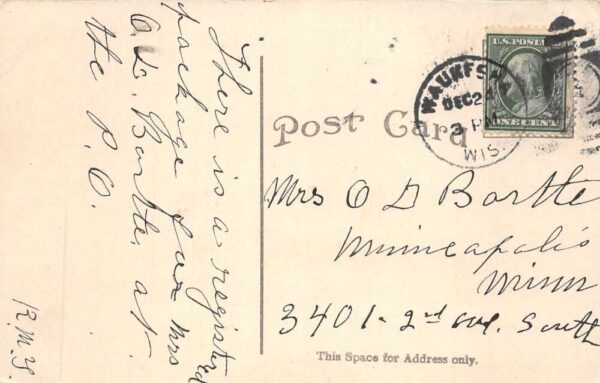 There is a registered
package for Mrs
O. D. Bartle, at
the P. O.
R.M.G.
Post Card
WAUKESHA
DEC 2
3 PM
WIS.
U.S. POST
ONE CENT
Mrs O D Bartle
Minneapolis
Minn
3401- 2nd ave. South
This Space for Address only.